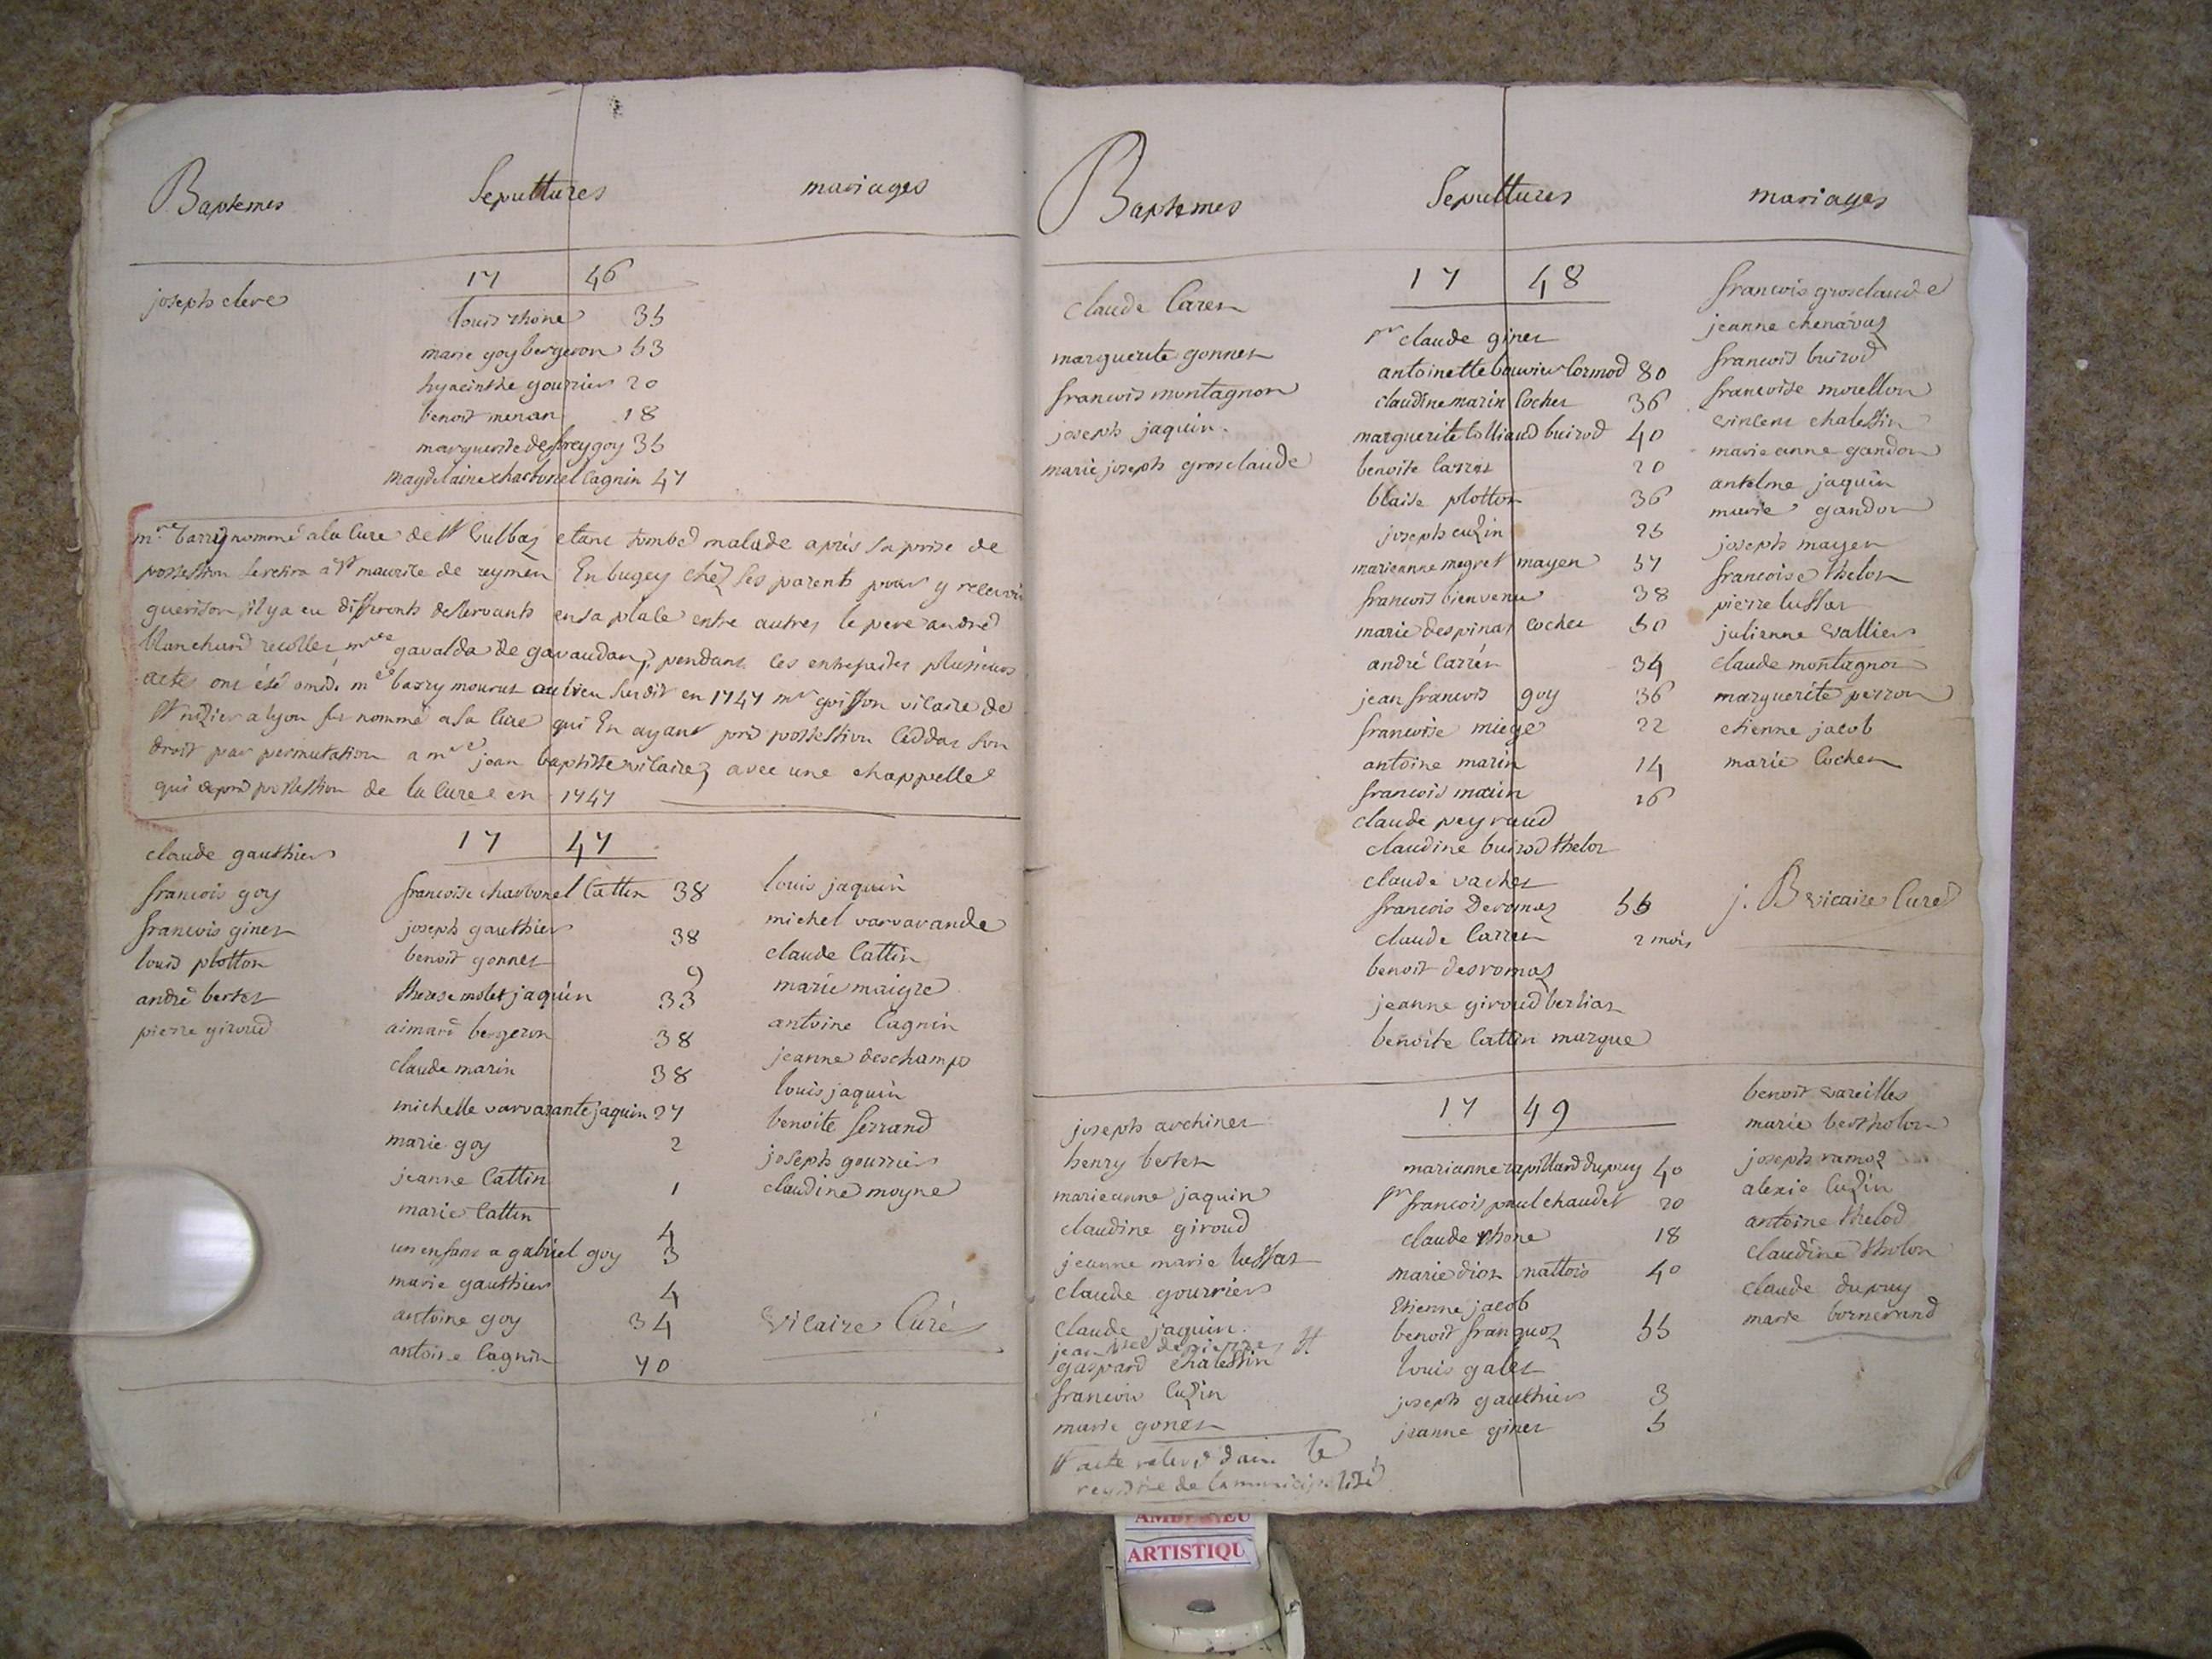 Baptemes Sepultures mariages
1746
joseph clere
louis rhone 35
marie goy bergeron 53
hyacinthe gourrier 20
benoit menan 18
marguerite desfrey goy 35
magdelaine charbonel Cagnin 47
mre barry nommé a la Cure de st Vulbaz etant tombé malade aprés sa prise de
possession se retira a st maurice de reymen En bugey chéz ses parents pour y recevoir
guerison, il ya eu differents desservants en sa place entre autres le pere andré
blanchard recollet mre gavalda de gavaudan, pendant ces entrefaites plusieurs
actes ont été omis. mre barry mourut au lieu susdit en 1747 mr goiffon vicaire de
st nizier a lyon fut nommé a la Cure qui En ayant pris possession Cedda son
droit par permutation a mre jean baptiste vicaire, avec une chappelle
qui prit possession de la Cure en 1747
1747
claude gauthier
francois goy
francois ginet
louis plotton
andré bertet
pierre giroud
francoise charbonel Cattin 38
joseph gauthier 38
benoit gonnet 9
therese molet jaquin 33
aimard bergeron 38
claude marin 38
michelle varvarante jaquin 27
marie goy 2
jeanne Cattin 1
marie Cattin 4
un enfant a gabriel goy 3
marie gauthier 4
antoine goy 34
antoine Cagnin 70
louis jaquin
michel varvarande
claude Cattin
marie maigre
antoine Cagnin
jeanne deschamps
louis jaquin
benoite ferrand
joseph gourrier
claudine moyne
Vicaire Curé
Baptemes Sepultures mariages
1748
claude Caren
marguerite gonnet
francois montagnon
joseph jaquin.
marie joseph grosclaude
sr claude ginet
antoinette bouvier Cormod 80
claudine marin Cochet 36
marguerite tolliand buirod 40
benoite Carret 20
blaise plotton 36
joseph cuzin 25
marieanne megret mayen 57
francois bienvenu 38
marie despinas cochet 50
andré Carrét 34
jean francois goy 36
francoise miege 22
antoine marin 14
francois marin 16
claude peyraud
claudine buirod thelot
claude vachet
francois Deromaz 56
claude Carret 2 mois
benoit desromaz
jeanne giroud berliat
benoite Cattin marque
francois grosclaude
jeanne chenavaz
francois buirod
francoise morellon
vincent chalessin
marie anne gandon
antelme jaquin
marie gandon
joseph mayen
francoise thelot
pierre lussat
julienne vallier
claude montagnon
marguerite perron
etienne jacob
marie Cochet
j. B vicaire Curé
1749
joseph archinet
henry bertet
marieanne jaquin
claudine giroud
jeanne marie lussat
claude gourrier
claude jaquin.
gaspard chalessin
francois Cuzin
marie gonet
marianne rapillard dupuy 40
sr francois paul chaudet 20
claude rhone 18
marie diot nattois 40
Etienne jacob
benoit franquoz 55
louis galet
joseph gauthier 3
jeanne ginet 5
benoit vareilles
marie bertholon
joseph ramoz
alexie Cuzin
antoine thelod
claudine tholon
claude dupuy
marie bornerand
# acte relevé dans le
registre de la municipalité
ARTISTIQU